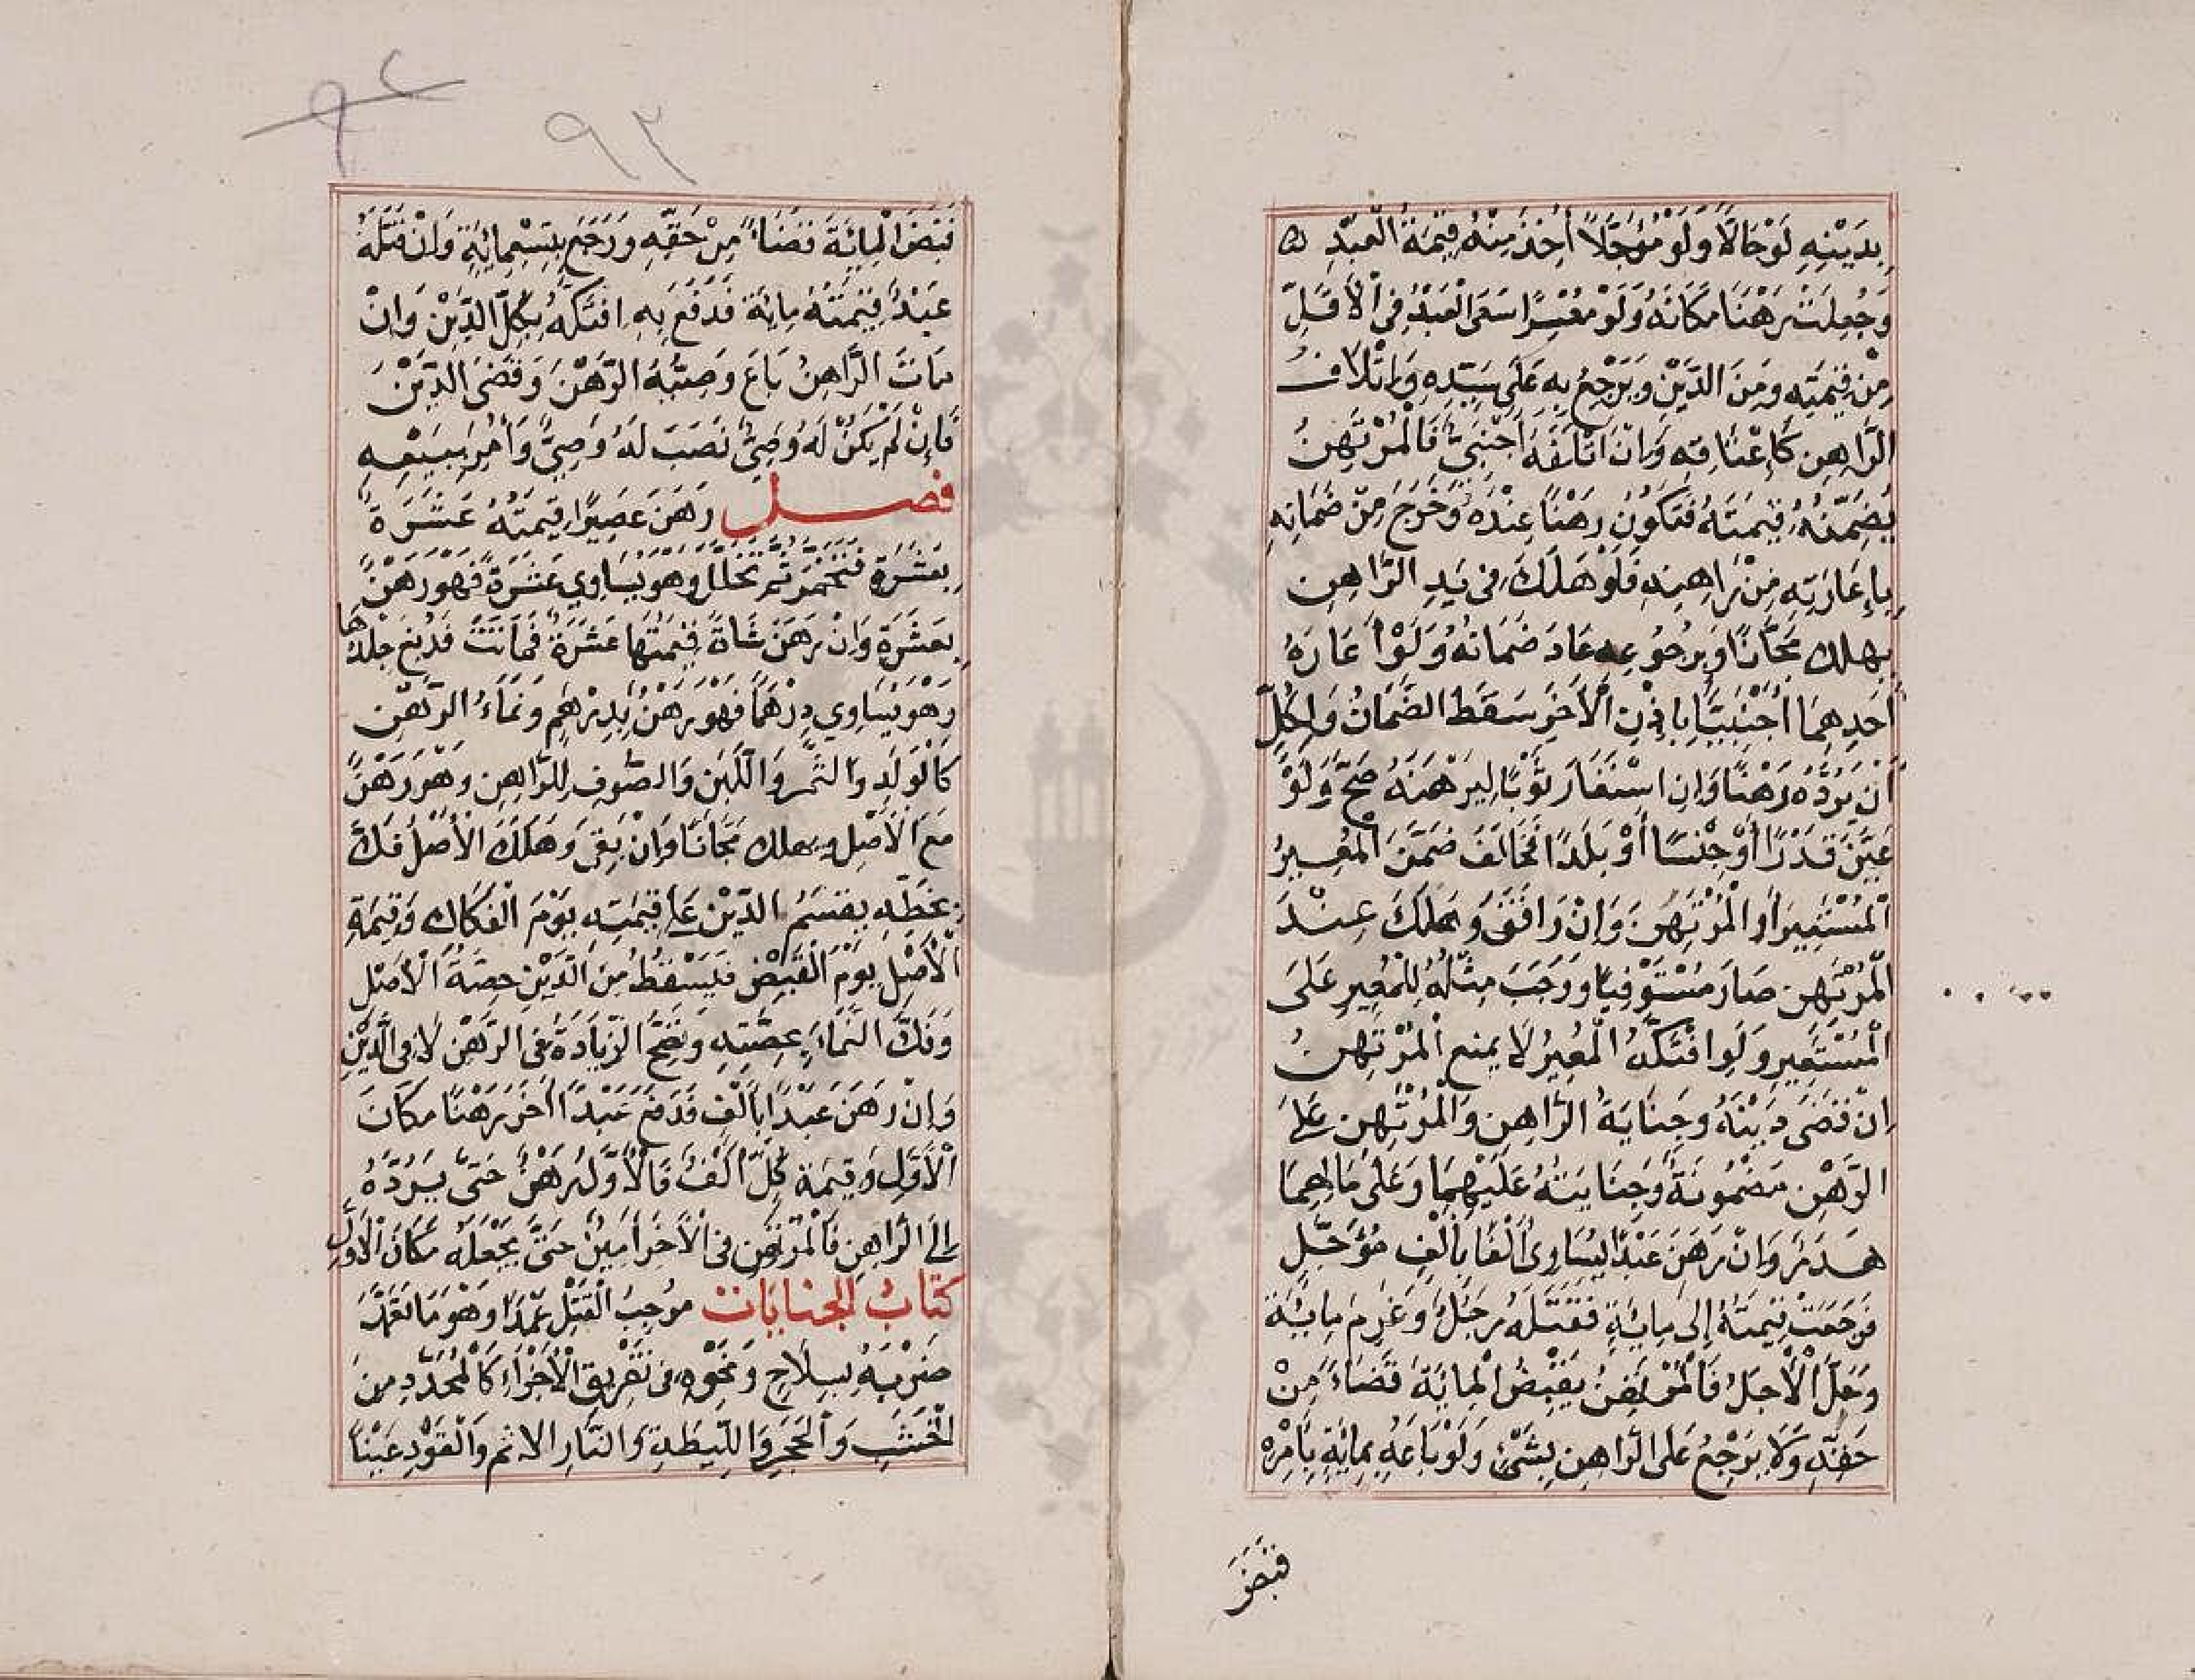 بِدَيْنِهِ لَوْ حَالًّا وَلَوْ مُؤَجَّلًا أُخِذَ مِنْهُ قِيْمَةُ الْعَبْدِ
وَجُعِلَتْ رَهْنًا مَكَانَهُ وَلَوْ مُعْسِرًا سَعَى الْعَبْدُ فِي الْأَقَلِّ
مِنْ قِيمَتِهِ وَمِنَ الدَّيْنِ وَيَرْجِعُ بِهِ عَلَى سَيِّدِهِ وَإِتْلَافُ
الرَّاهِنِ كَإِعْتَاقِهِ وَإِنْ أَتْلَفَهُ أَجْنَبِيٌّ فَالْمُرْتَهِنُ
يُضَمِّنُهُ قِيمَتَهُ فَتَكُونُ رَهْنًا عِنْدَهُ وَخَرَجَ مِنْ ضَمَانِهِ
بِإِعَارَتِهِ مِنْ رَاهِنِهِ فَلَوْ هَلَكَ فِي يَدِ الرَّاهِنِ
يهلك مَجَّانًا وَبِرُجُوعِهِ عَادَ ضَمَانُهُ وَلَوْ أَعَارَهُ
أَحَدُهُمَا أَجْنَبِيًّا بِإِذْنِ الْآخَرِ سَقَطَ الضَّمَانُ وَلِكُلٍّ
أَنْ يَرُدَّهُ رَهْنًا وَإِنِ اسْتَعَارَ ثَوْبًا لِيَرْهَنَهُ صَحَّ وَلَوْ
عَيَّنَ قَدْرًا أَوْ جِنْسًا أَوْ بَلَدًا فَخَالَفَ ضَمَّنَ الْمُعِيرُ
الْمُسْتَعِيرَ أَوِ الْمُرْتَهِنَ وَإِنْ وَافَقَ وَهَلَكَ عِنْدَ
الْمُرْتَهِنِ صَارَ مُسْتَوْفِيًا وَوَجَبَ مِثْلُهُ لِلْمُعِيرِ عَلَى
الْمُسْتَعِيرِ وَلَوِ افْتَكَّهُ الْمُعِيرُ لَا يمنع الْمُرْتَهِنُ
إِنْ قَضَى دَيْنَهُ وَجِنَايَةُ الرَّاهِنِ وَالْمُرْتَهِنِ عَلَى
الرَّهْنِ مَضْمُونَةٌ وَجِنَايَتُهُ عَلَيْهِمَا وَعَلَى مَالِهِمَا
هَدَرٌ وَإِنْ رَهَنَ عَبْدًا يُسَاوِي أَلْفًا بِأَلْفٍ مُؤَجَّلٍ
فَرَجَعَتْ قِيمَتُهُ إِلَى مِائَةٍ فَقَتَلَهُ رَجُلٌ وَغَرِمَ مِائَةً
وَحَلَّ الْأَجَلُ فَالْمُرْتَهِنُ يَقْبِضُ الْمِائَةَ قَضَاءً مِنْ
حَقِّهِ وَلَا يَرْجِعُ عَلَى الرَّاهِنِ بِشَيْءٍ وَلَوْ بَاعَهُ بِمِائَةٍ بِأَمْرِهِ
قَبَضَ
٩٣
قَبَضَ الْمِائَةَ قَضَاءً مِنْ حَقِّهِ وَرَجَعَ بِتِسْعِمِائَةٍ وَإِنْ قَتَلَهُ
عَبْدٌ قِيمَتُهُ مِائَةٌ فَدُفِعَ بِهِ افْتَكَّهُ بِكُلِّ الدَّيْنِ وَإِنْ
مَاتَ الرَّاهِنُ بَاعَ وَصِيُّهُ الرَّهْنَ وَقَضَى الدَّيْنَ
فَإِنْ لَمْ يَكُنْ لَهُ وَصِيٌّ نَصَبَ لَهُ وَصِيٌّ وَأُمِرَ بِبَيْعِهِ
فصل رَهَنَ عَصِيرًا قِيمَتُهُ عَشَرَةٌ
بِعَشَرَةٍ فَتَخَمَّرَ ثُمَّ تَخَلَّلَ وَهُوَ يُسَاوِي عَشَرَةً فَهُوَ رَهْنٌ
بِعَشَرَةٍ وَإِنْ رَهَنَ شَاةً قِيمَتُهَا عَشَرَةٌ فَمَاتَتْ فَدُبِغَ جِلْدُهَا
وَهُوَ يُسَاوِي دِرْهَمًا فَهُوَ رَهْنٌ بِدِرْهَمٍ وَنَمَاءُ الرَّهْنِ
كَالْوَلَدِ وَالثَّمَرِ وَاللَّبَنِ وَالصُّوفِ لِلرَّاهِنِ وَهُوَ رَهْنٌ
مَعَ الْأَصْلِ وَيهلك مَجَّانًا وَإِنْ بَقِيَ وَهَلَكَ الْأَصْلُ فُكَّ
بِحَظِّهِ يُقْسَمُ الدَّيْنُ عَلَى قِيمَتِهِ يَوْمَ الْفَكَاكِ وَقِيمَةِ
الْأَصْلِ يَوْمَ الْقَبْضِ فَيَسْقُطُ مِنَ الدَّيْنِ حِصَّةُ الْأَصْلِ
وَفُكَّ النَّمَاءُ بِحِصَّتِهِ وَتَصِحُّ الزِّيَادَةُ فِي الرَّهْنِ لَا فِي الدَّيْنِ
وَإِنْ رَهَنَ عَبْدًا بِأَلْفٍ فَدَفَعَ عَبْدًا آخَرَ رَهْنًا مَكَانَ
الْأَوَّلِ وَقِيمَةُ كُلٍّ أَلْفٌ فَالْأَوَّلُ رَهْنٌ حَتَّى يَرُدَّهُ
إِلَى الرَّاهِنِ فَالْمُرْتَهِنُ فِي الْآخَرِ أَمِينٌ حَتَّى يَجْعَلَهُ مَكَانَ الْأَوَّلِ
كتاب الجنايات مُوجِبُ الْقَتْلِ عَمْدًا وَهُوَ مَا تَعَمَّدَ
ضَرْبَهُ بِسِلَاحٍ وَنَحْوِهِ فِي تَفْرِيقِ الْأَجْزَاءِ كَالْمُحَدَّدِ مِنَ
الْخَشَبِ وَالْحَجَرِ وَاللِّيطَةِ وَالنَّارِ الْإِثْمُ وَالْقَوَدُ عَيْنًا